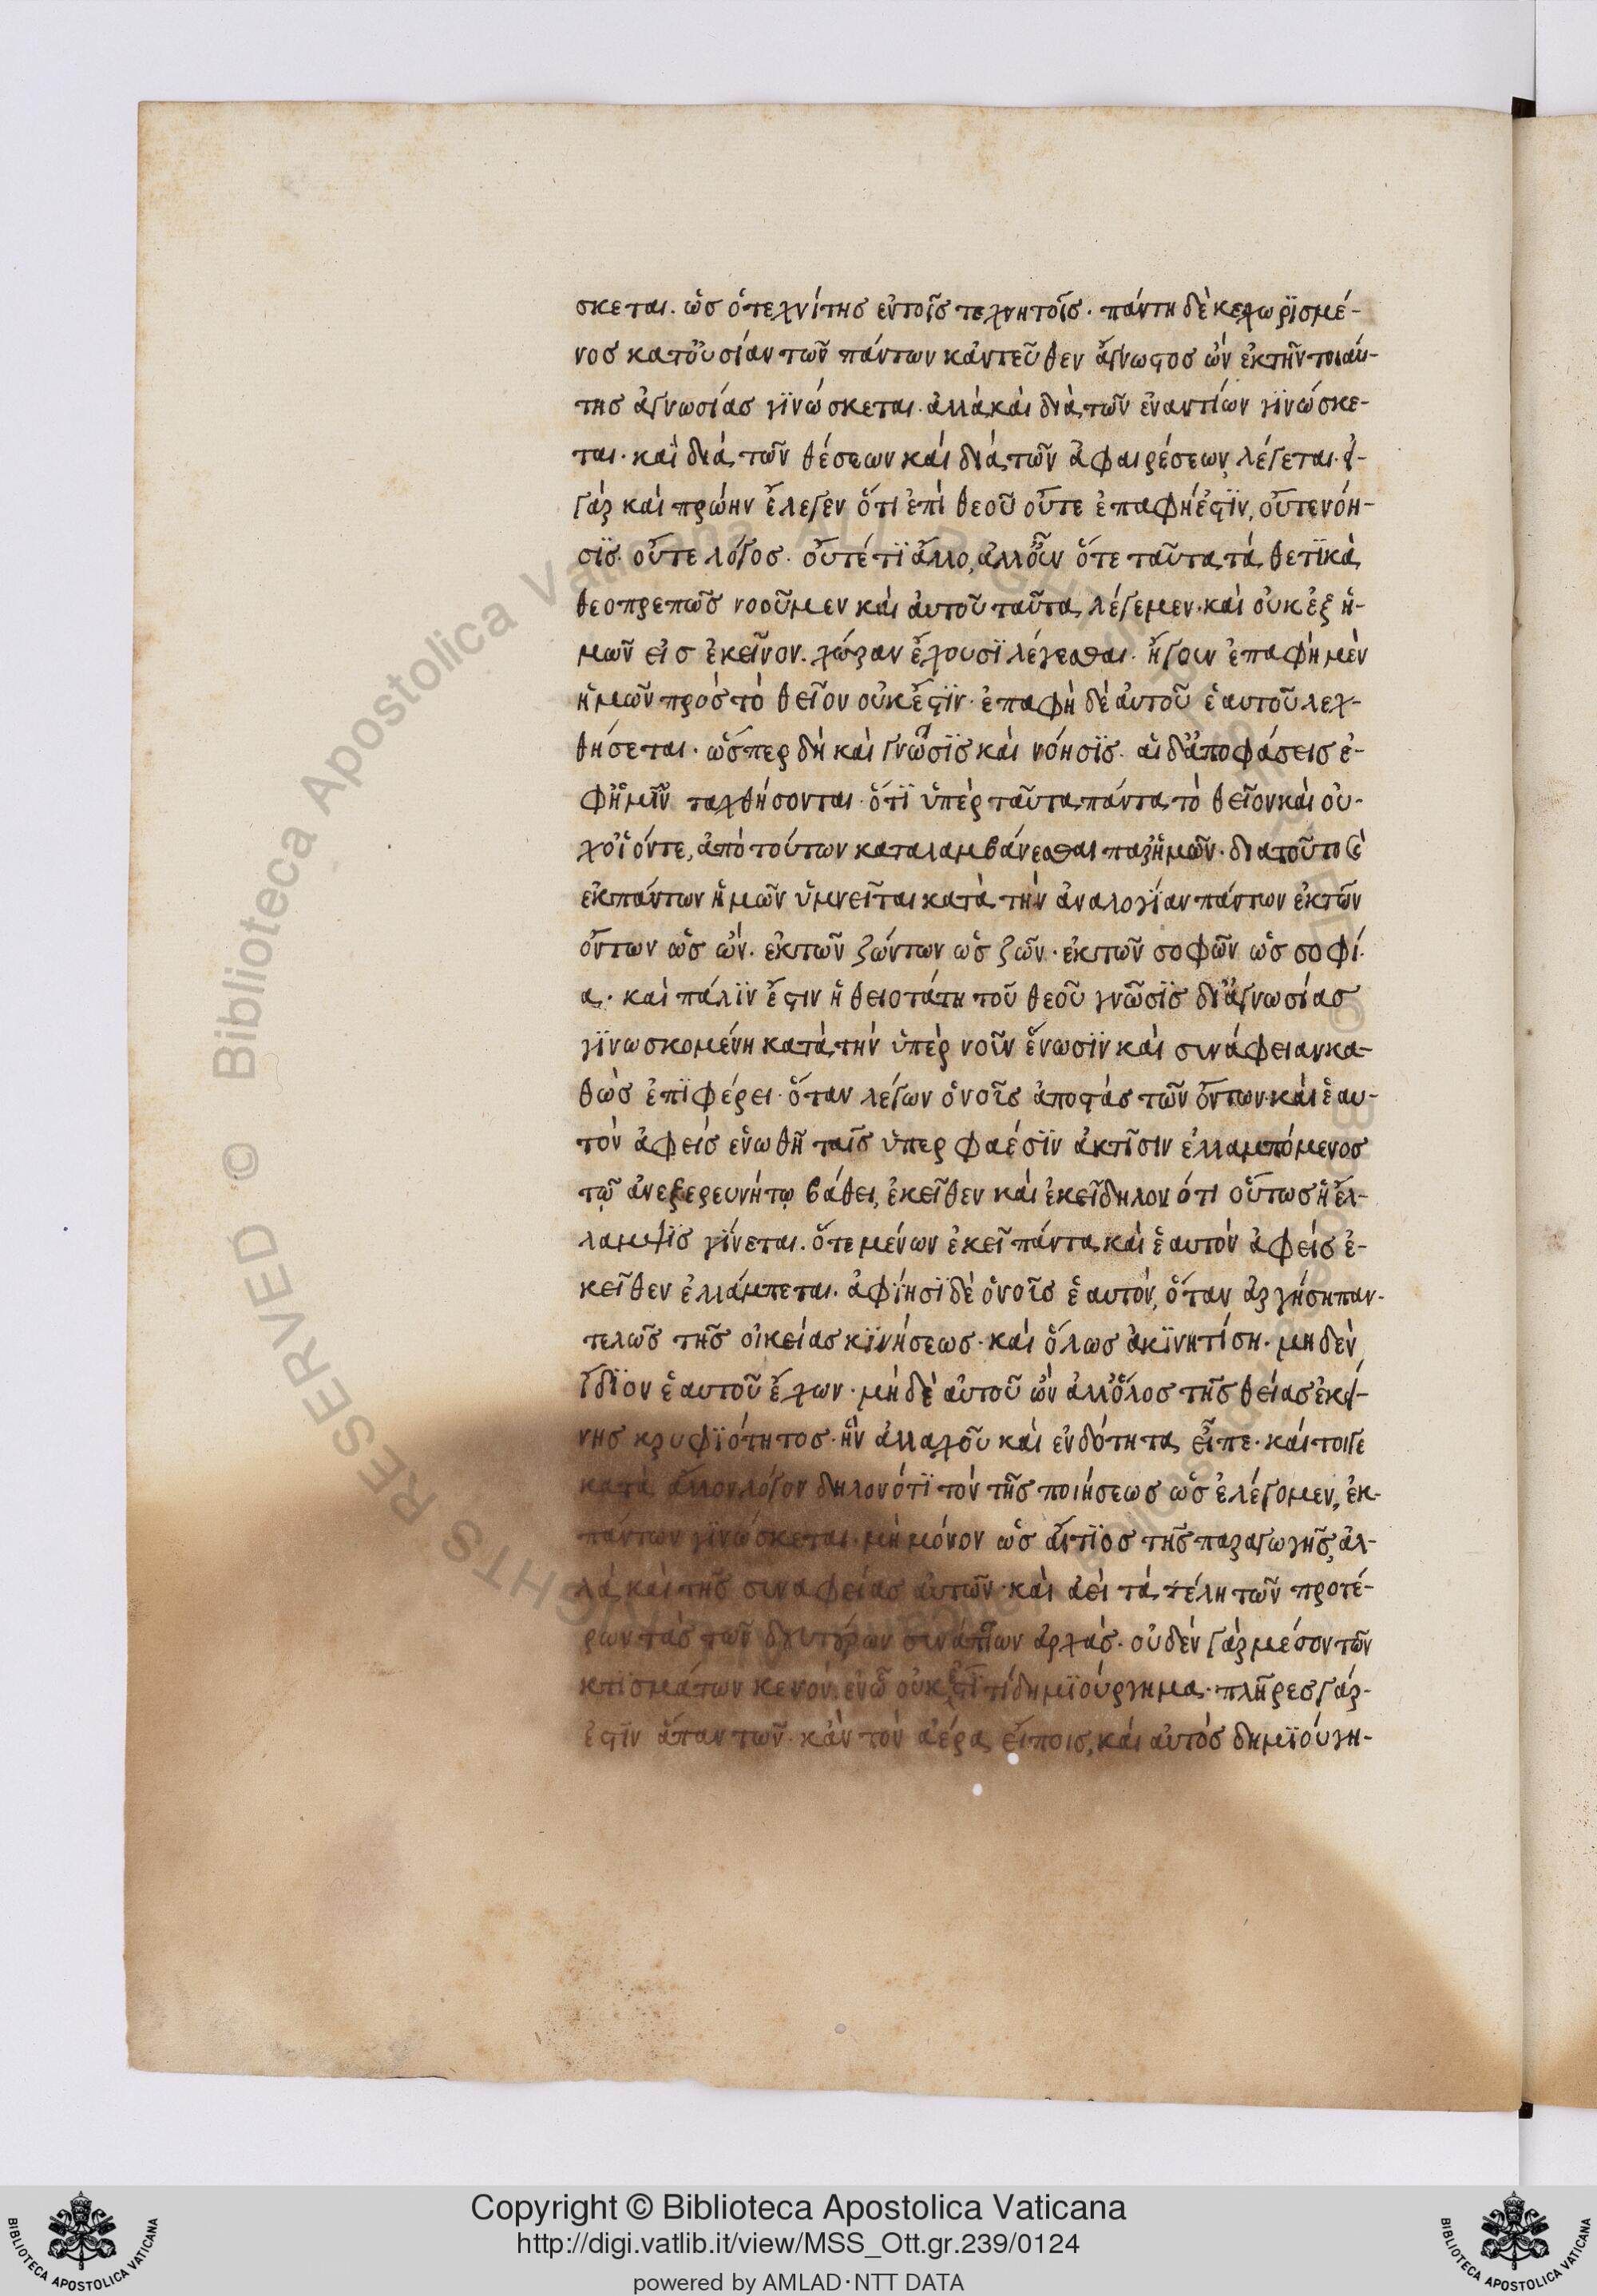 σκεται. ὡς ὁ τεχνίτης ἐν τοῖς τεχνητοῖς· πάντη δὲ κεχωρϊσμέ-
νος κατ' οὐσίαν τῶν πάντων κἀντεῦθεν ἄγνωστος ὢν ἐκ τῆν τοιαύ-
της ἀγνωσίας γϊνώσκεται. ἀλλὰ καὶ διὰ τῶν ἐναντίων γϊνώσκε-
ται· καὶ διὰ τῶν θέσεων καὶ διὰ τῶν ἀφαιρέσεων λέγεται. εἰ
γὰρ καὶ πρώην ἔλεγεν ὅτι ἐπὶ θεοῦ οὔτε ἐπαφή ἐστϊν, οὔτε νόη-
σϊς. οὔτε λόγος. οὔτέ τϊ ἄλλο, ἀλλ' οὖν ὅτε ταῦτα τὰ θετϊκὰ
θεοπρεπῶς νοοῦμεν καὶ αὐτοῦ ταῦτα λέγεμεν· καὶ οὐκ ἐξ ἡ-
μῶν εἰς ἐκεῖνον. χώραν ἔχουσϊ λέγεσθαι. ἤγουν ἐπαφὴ μὲν
ἡμῶν πρὸς τὸ θεῖον οὐκ ἔστϊν· ἐπαφὴ δὲ αὐτοῦ ἑαυτοῦ λεχ-
θήσεται· ὥσπερ δὴ καὶ γνῶσϊς καὶ νόησϊς. αἱ δ' ἀποφάσεις ἐ-
φ' ἡμῖν ταχθήσονται. ὅτϊ ὑπὲρ ταῦτα πάντα τὸ θεῖον καὶ οὐ-
χ οἷόν τε, ἀπὸ τούτων καταλαμβάνεσθαι παρ' ἡμῶν· διατοῦτο καὶ
ἐκ πάντων ἡμῶν ὑμνεῖται κατὰ τὴν ἀναλογίαν πάντων ἐκ τῶν
ὄντων ὡς ὤν. ἐκ τῶν ζώντων ὡς ζῶν· ἐκ τῶν σοφῶν ὡς σοφί-
α· καὶ πάλϊν ἔστιν ἡ θειοτάτη τοῦ θεοῦ γνῶσϊς δι' ἀγνωσίας
γϊνωσκομένη κατὰ τὴν ὑπὲρ νοῦν ἕνωσϊν καὶ συνάφειαν κα-
θὼς ἐπϊφέρει· ὅταν λέγων ὁ νοῦς ἀποστὰς τῶν ὄντων· καὶ ἑαυ-
τὸν ἀφεὶς ἑνωθῆ ταῖς ὑπερφαέσϊν ἀκτῖσιν ἐλλαμπόμενος
τῷ ἀνεξερευνήτῳ βάθει, ἐκεῖθεν καὶ ἐκεῖ δῆλον ὅτι οὕτως ἡ ἔλ-
λαμψϊς γίνεται. ὅτε μένων ἐκεῖ πάντα καὶ ἑαυτὸν ἀφεὶς ἐ-
κεῖθεν ἐλλάμπεται. ἀφίησϊ δὲ ὁ νοῦς ἑαυτόν, ὅταν ἀργήση παν-
τελῶς τῆς οἰκείας κϊνήσεως· καὶ ὅλως ἀκϊνητίση. μηδὲν
ἴδϊον ἑαυτοῦ ἔχων· μηδὲ αὐτοῦ ὢν ἀλλ' ὅλος τῆς θείας ἐκεί-
νης κρυφϊότητος· ἣν ἀλλαχοῦ καὶ ἐνδότητα εἶπε· καίτοιγε
κατὰ ἄλλον λόγον δηλονότϊ τὸν τῆς ποιήσεως ὡς ἐλέγομεν, ἐκ-
πάντων γϊνώσκεται. μὴ μόνον ὡς αἴτϊος τῆς παραγωγῆς, ἀλ-
λὰ καὶ τῆς συναφείας αὐτῶν· καὶ ἀεὶ τὰ τέλη τῶν προτέ-
ρων τὰς τῶν δευτέρων συνάπτων ἀρχάς. οὐδὲν γὰρ μέσον τῶν
κτϊσμάτων κενόν. ἐν ᾧ οὐκ ἔστϊ τί δημϊούργημα· πλῆρες γάρ-
ἐστϊν ἅπαν τῶν· κἂν τὸν ἀέρα εἴποις, καὶ αὐτὸς δημϊούγη-